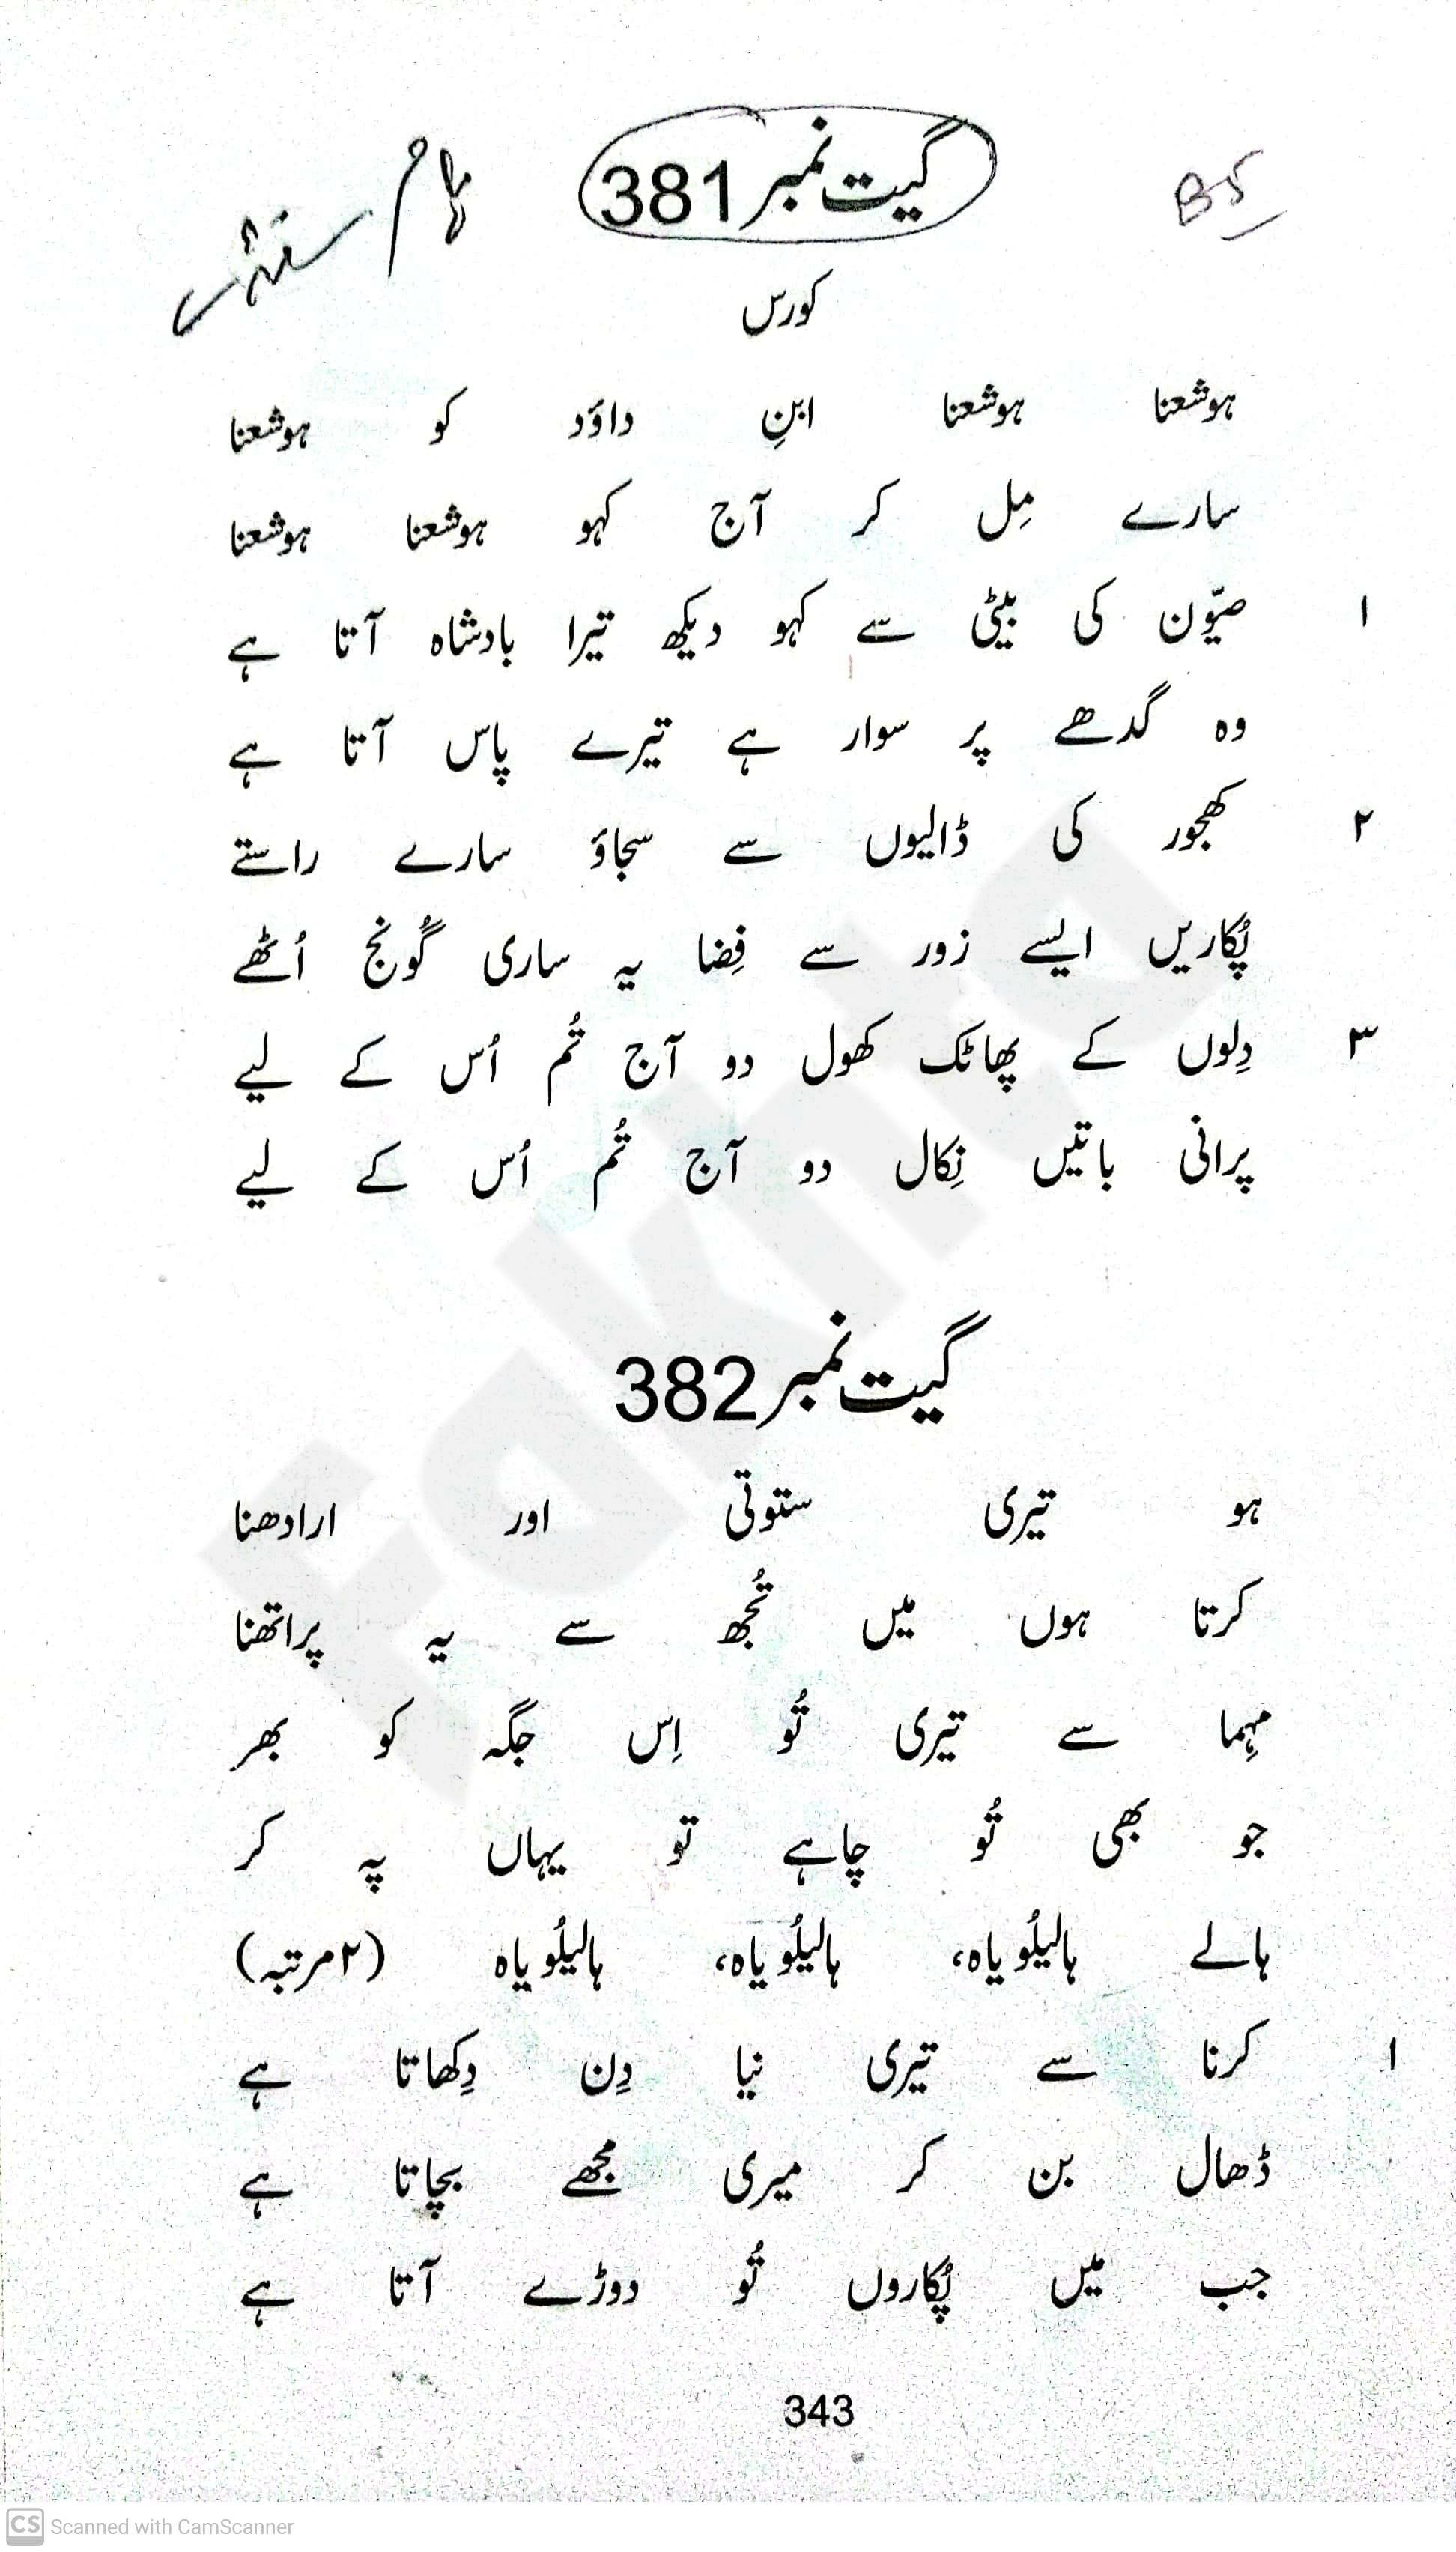 گیت نمبر 381
B5
کورس
ہوشعنا ہوشعنا ابنِ داؤد کو ہوشعنا
سارے مِل کر آج کہو ہوشعنا ہوشعنا
۱ صیّون کی بیٹی سے کہو دیکھ تیرا بادشاہ آتا ہے
وہ گدھے پر سوار ہے تیرے پاس آتا ہے
۲ کھجور کی ڈالیوں سے سجاؤ سارے راستے
پُکاریں ایسے زور سے فِضا یہ ساری گُونج اُٹھے
۳ دِلوں کے پھاٹک کھول دو آج تُم اُس کے لیے
پرانی باتیں نِکال دو آج تُم اُس کے لیے
گیت نمبر 382
ہو تیری ستوتی اور ارادھنا
کرتا ہوں میں تُجھ سے یہ پراتھنا
مہِما سے تیری تُو اِس جگہ کو بھر
جو بھی تُو چاہے تو یہاں پہ کر
ہالے ہالیلُویاہ، ہالیلُویاہ، ہالیلُویاہ (۲مرتبہ)
۱ کرنا سے تیری نیا دِن دِکھاتا ہے
ڈھال بن کر میری مجھے بچاتا ہے
جب میں پُکاروں تُو دوڑے آتا ہے
343
Fakhta
CS Scanned with CamScanner